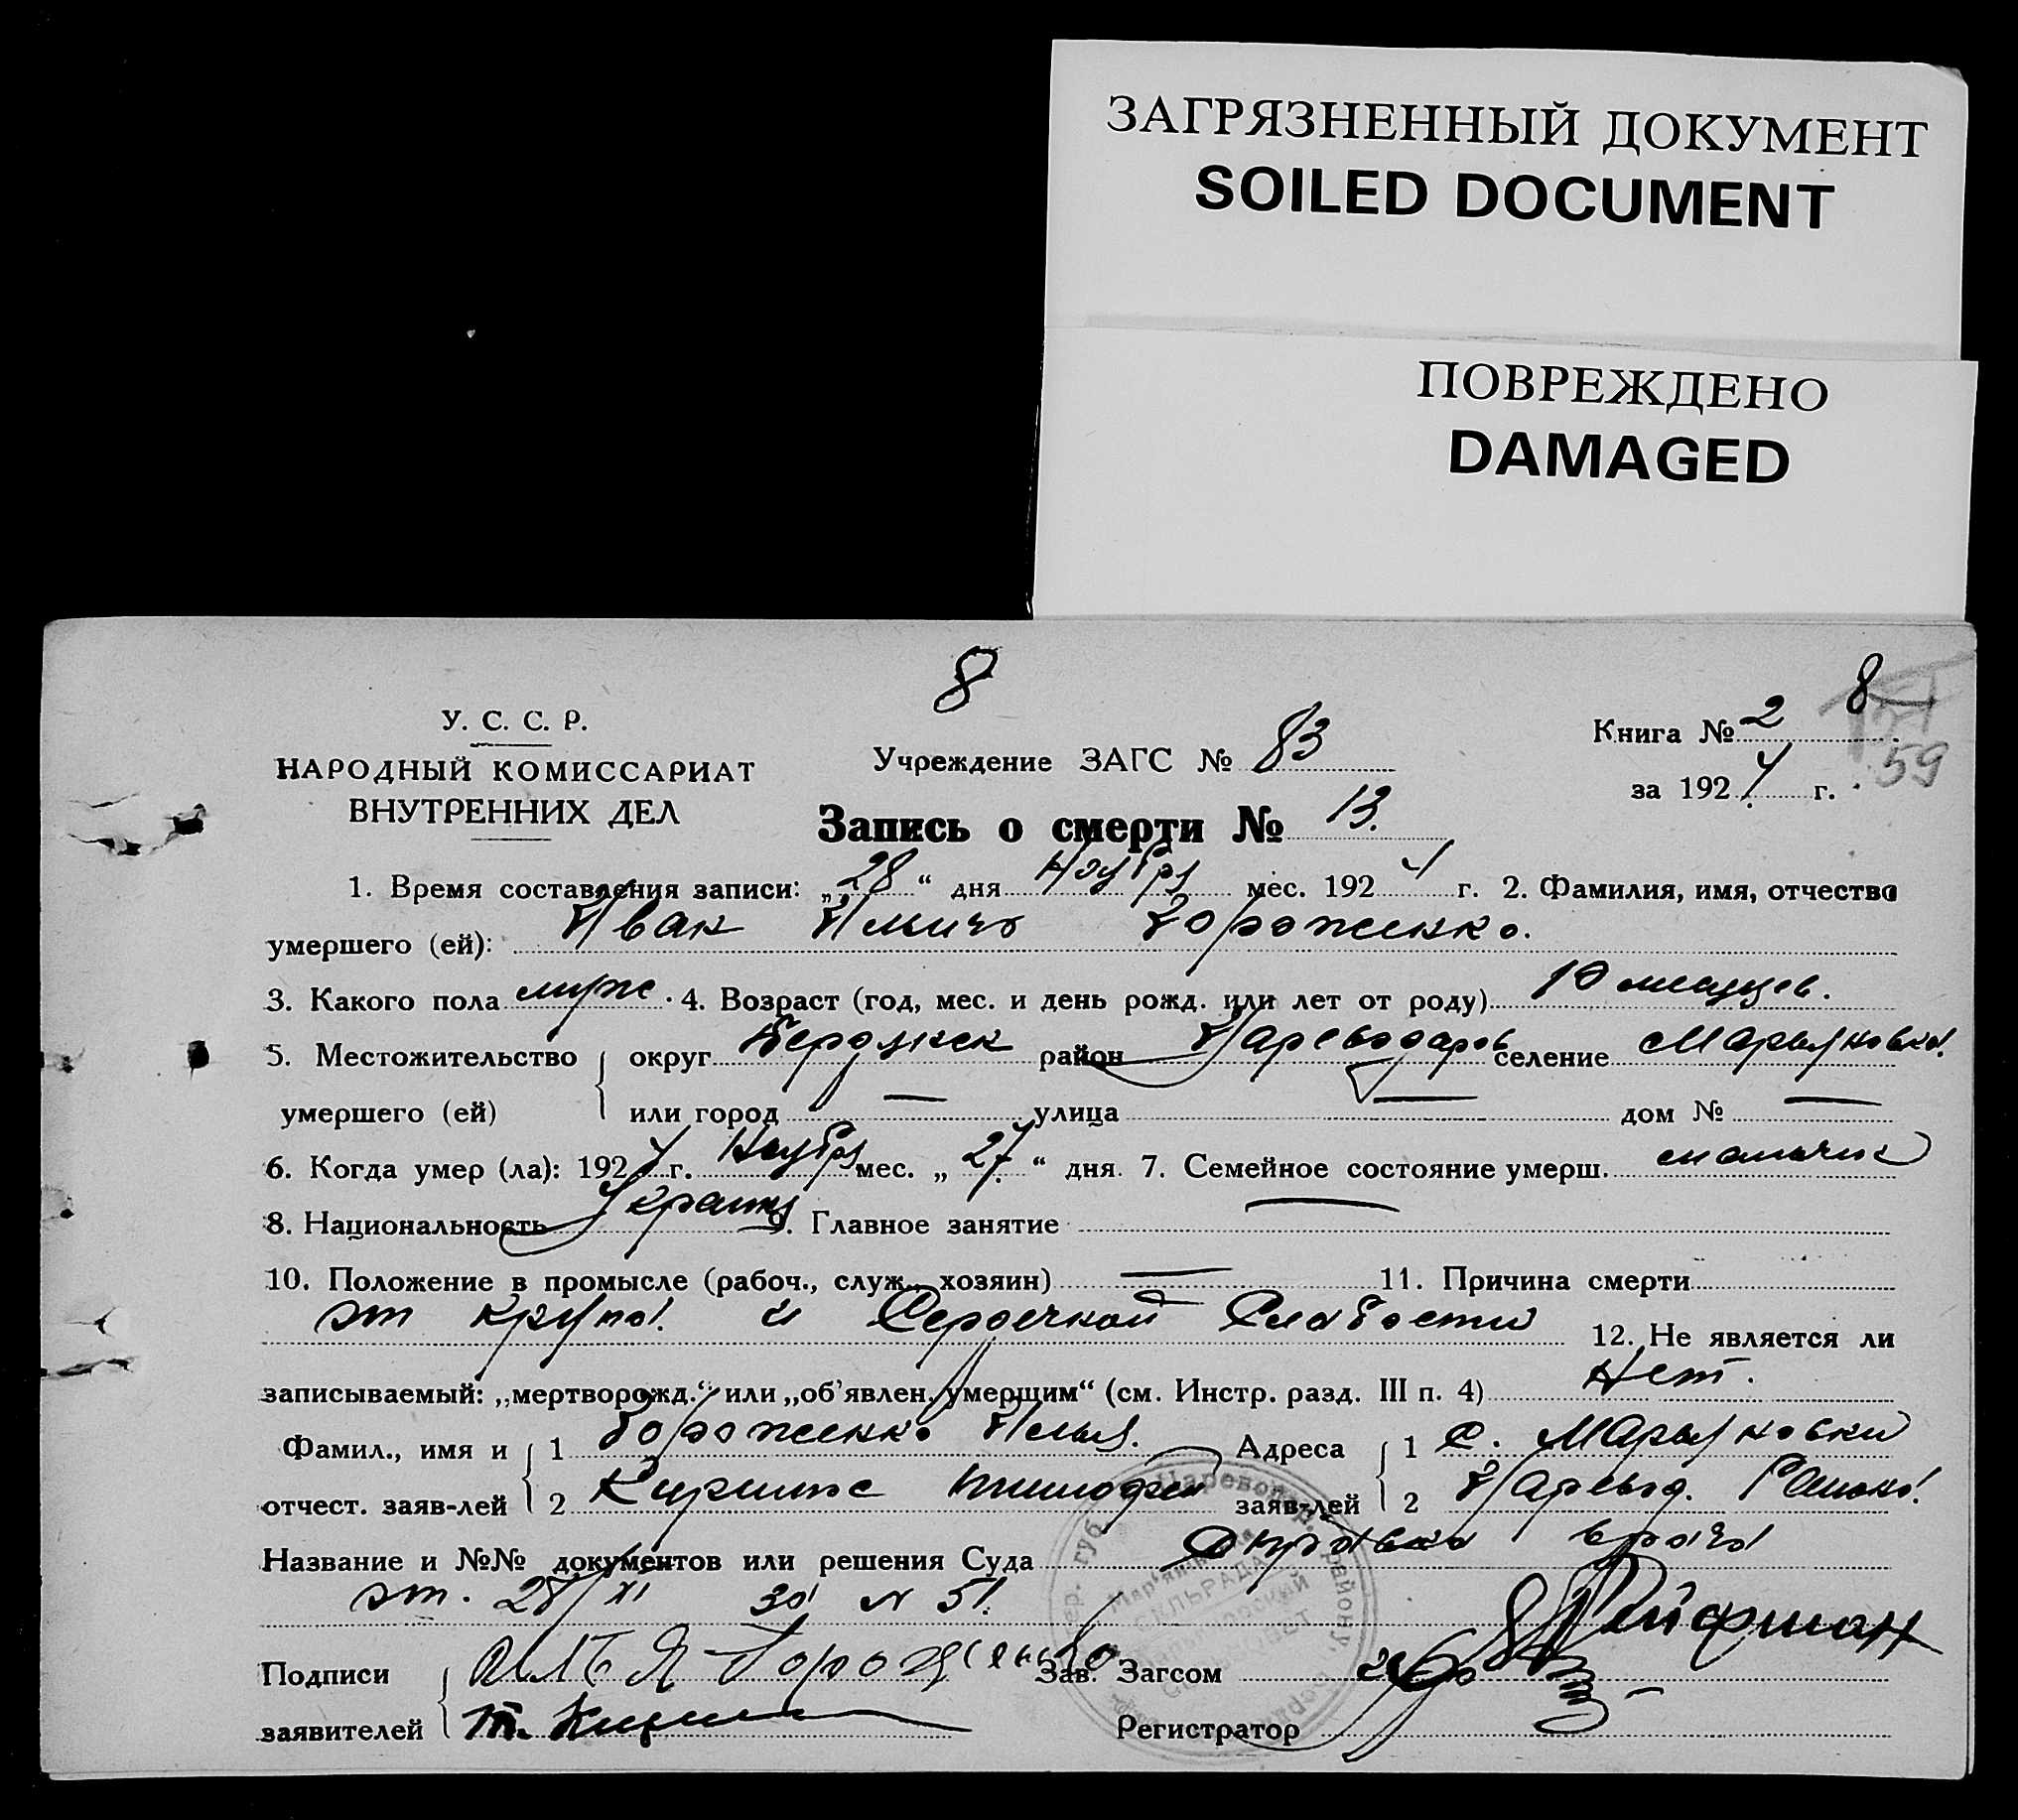 ЗАГРЯЗНЕННЫЙ ДОКУМЕНТ
SOILED DOCUMENT
ПОВРЕЖДЕНО
DAMAGED
8
8
У. С. С. Р.
НАРОДНЫЙ КОМИССАРИАТ
ВНУТРЕННИХ ДЕЛ
Учреждение ЗАГС № 83
Книга № 2
59
за 1924 г.
Запись о смерти № 13.
1. Время составления записи: „28“ дня Ноября мес. 1924 г. 2. Фамилия, имя, отчество
умершего (ей): Иван Ильич Бороженко.
3. Какого пола муж. 4. Возраст (год, мес. и день рожд. или лет от роду) 10 месяцев.
5. Местожительство округ район Цареводаров селение Марьяновка.
умершего (ей) или город — улица — дом № —
6. Когда умер (ла): 1924 г. Ноября мес. „27“ дня. 7. Семейное состояние умерш. мальчик
8. Национальность Украин. 9. Главное занятие —
10. Положение в промысле (рабоч., служ., хозяин) — 11. Причина смерти
от крупа и Сердечной Слабости 12. Не является ли
записываемый: „мертворожд.“ или „об'явлен. умершим“ (см. Инстр. разд. III п. 4) Нет.
Фамил., имя и 1 Бороженко Илья. Адреса 1 с. Марьяновки
отчест. заяв-лей 2 Тимофей заяв-лей 2 Царевод. Района.
Название и №№ документов или решения Суда Справка врача
от. 28/XI за N 51.
Подписи Илья Бороженко Зав. Загсом
заявителей Т. Регистратор